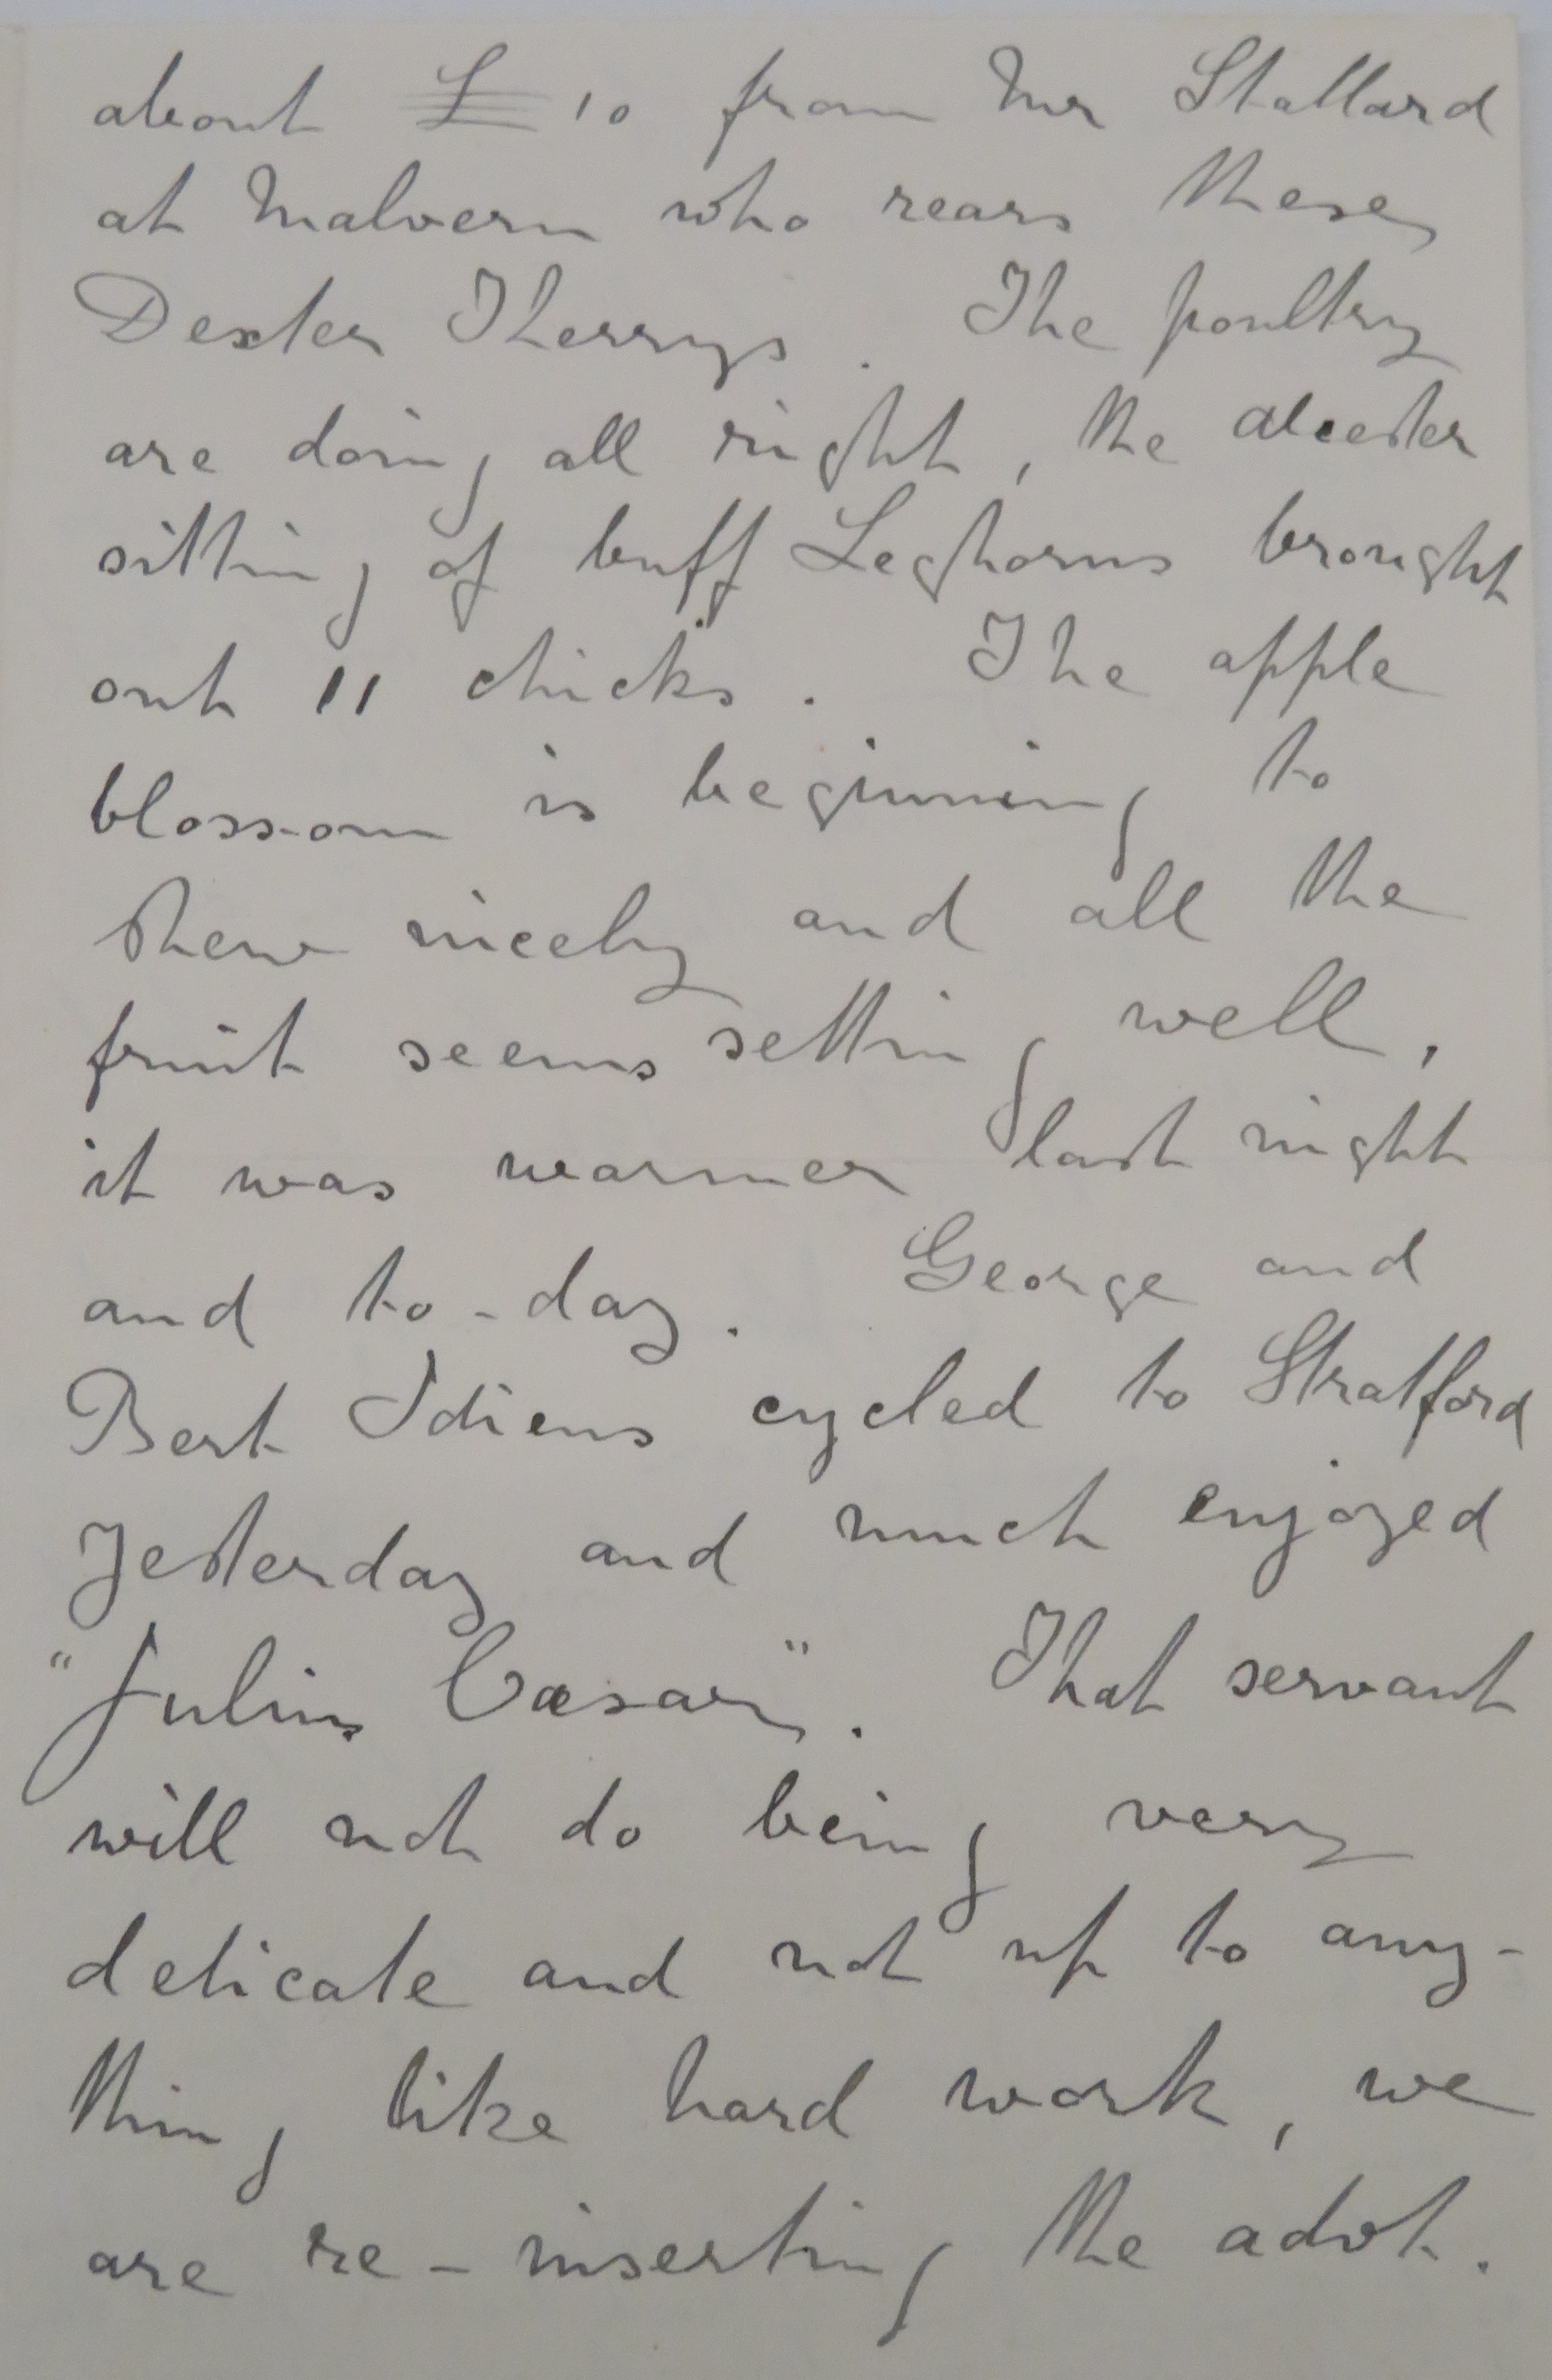 about £10 from Mr Stallard
at Malvern who rears these
Dexter Kherrys. The poultry
are doing all right, the Alcester
sitting of buff Leghorns brought
out 11 chicks. The apple
blossom is beginning to
shew nicely and all the
fruit seems setting well,
it was warmer last night
and to-day. George and
Bert Idiens cycled to Stratford
yesterday and much enjoyed
"Julius Cæsar". That servant
will not do being very
delicate and not up to any-
thing like hard work, we
are re-inserting the advt.